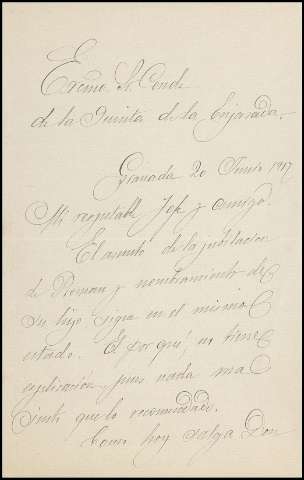 Excmo Sr. Conde
de la Quinta de la Enjarada.
Granada 20 Junio 1917
Mi respetable Jefe y amigo.
El asunto de la jubilacion
de Roman y nombramiento de
su hijo, sigue en el mismo
estado. El porqué, no tiene
explicación, pues nada mas
justo que lo recomendado.
Como hoy salga Don